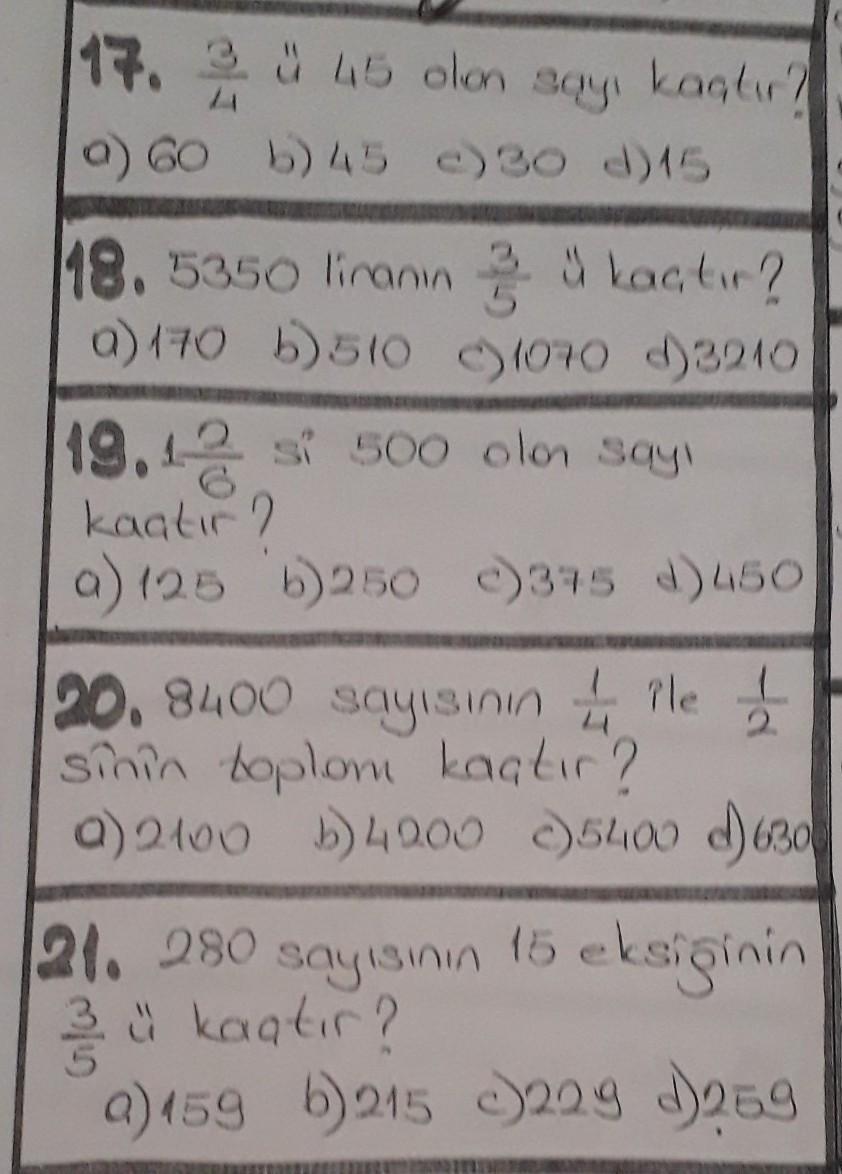 17. 3/4 ü 45 olan sayı kaçtır?
a) 60 b) 45 c) 30 d) 15
18. 5350 liranın 3/5 ü kaçtır?
a) 170 b) 510 c) 1070 d) 3210
19. 1 2/6 si 500 olan sayı
kaçtır?
a) 125 b) 250 c) 375 d) 450
20. 8400 sayısının 1/4 ile 1/2
sinin toplamı kaçtır?
a) 2100 b) 4200 c) 5400 d) 6300
21. 280 sayısının 15 eksiğinin
3/5 ü kaçtır?
a) 159 b) 215 c) 229 d) 259